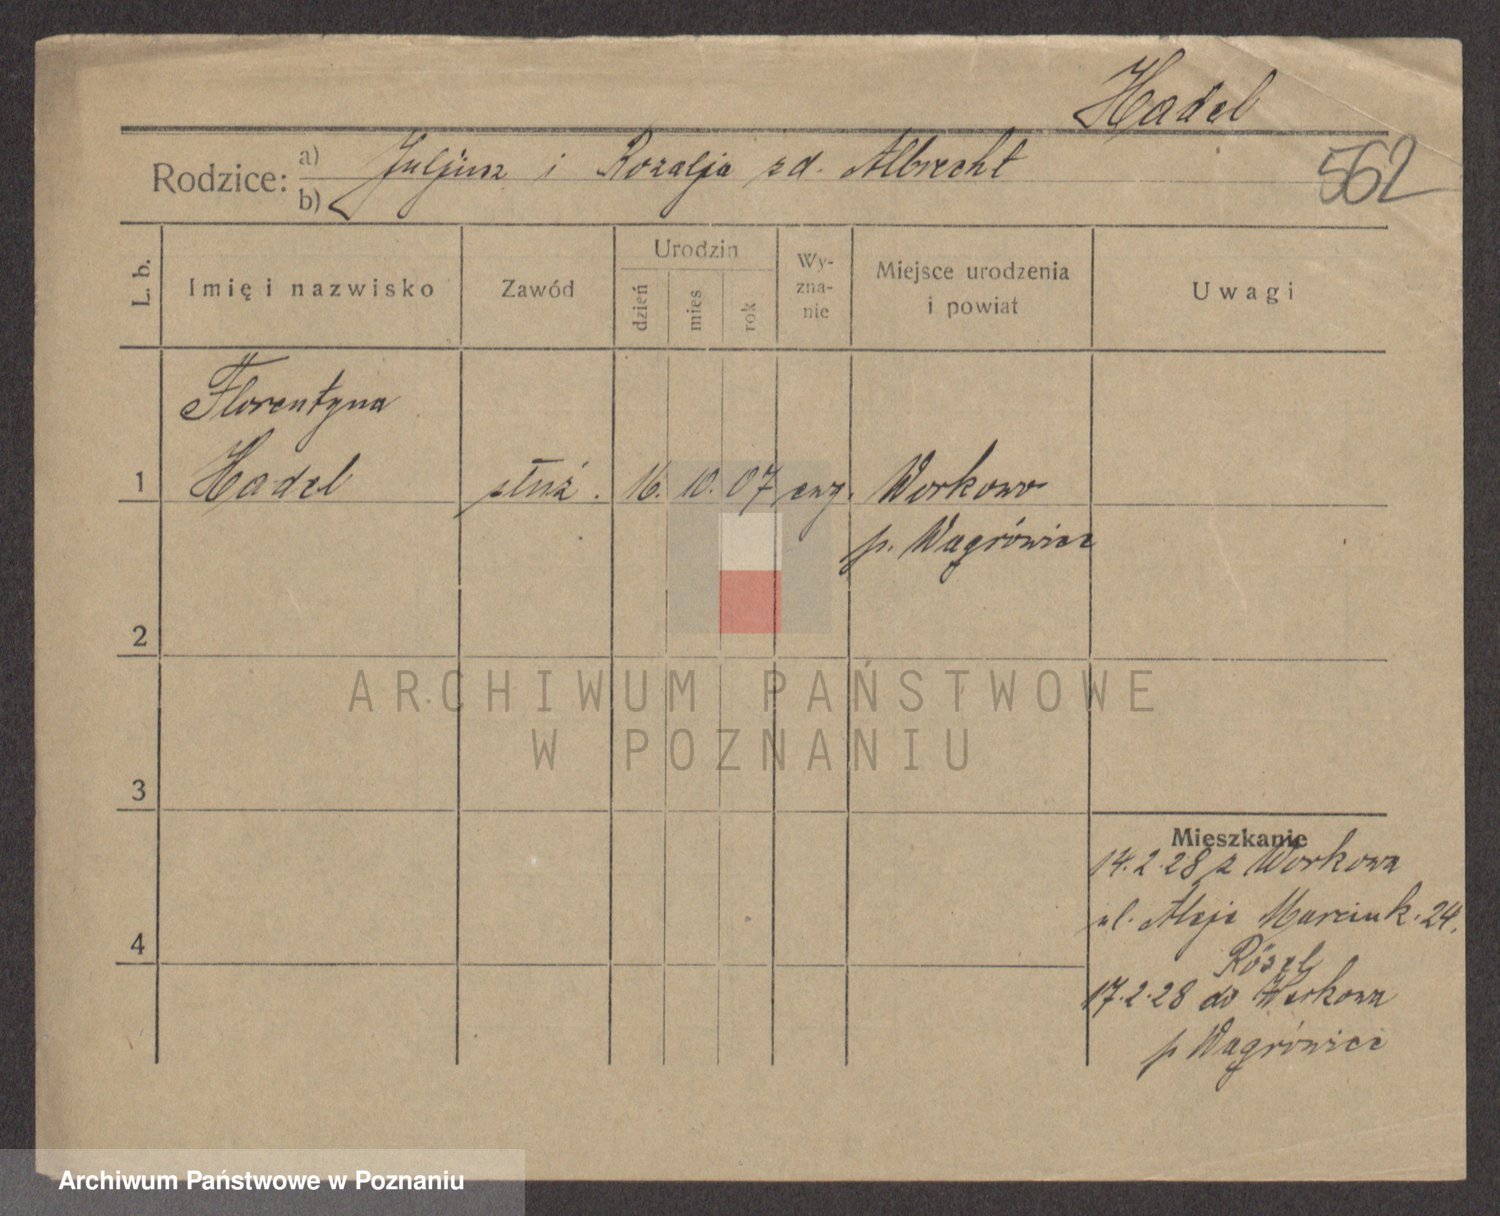 Hadel
562
Rodzice: a) Juljusz i Rozalja zd. Albrecht
b)
L. b.
Imię i nazwisko
Zawód
Urodzin
dzień
mies
rok
Wy-
zna-
nie
Miejsce urodzenia
i powiat
Uwagi
Florentyna
1 Hadel służ. 16. 10. 07 ewg. Workowo
p. Wągrówiec
2
ARCHIWUM PAŃSTWOWE
W POZNANIU
3
Mieszkanie
14.2.28 z Workowa
ul. Aleje Marcink. 24.
4
17.2.28 do Workowa
p Wągrówiec
Archiwum Państwowe w Poznaniu